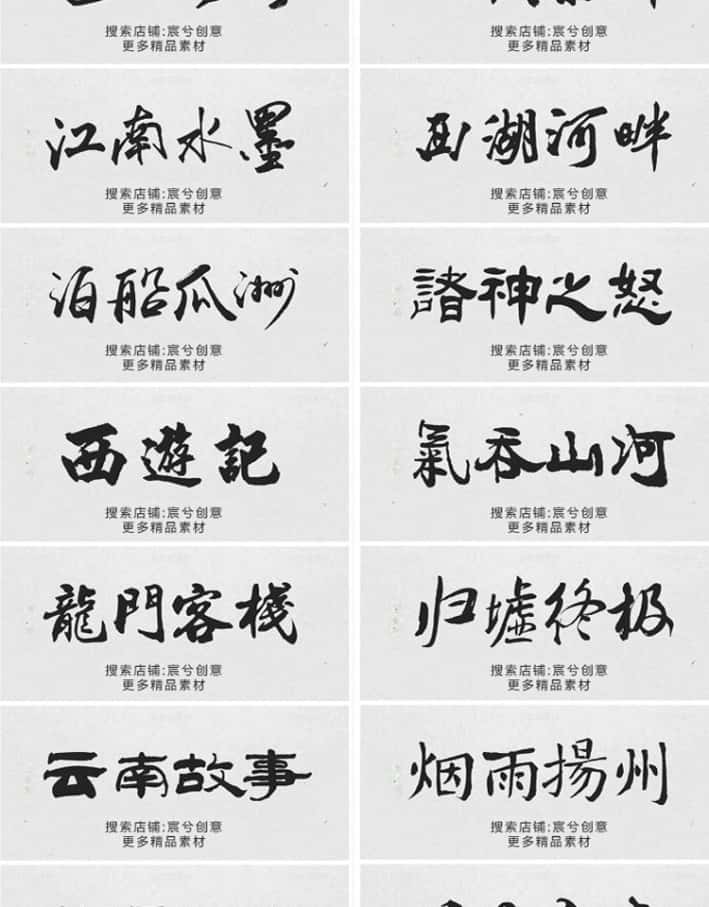 搜索店铺:宸兮创意
更多精品素材
搜索店铺:宸兮创意
更多精品素材
江南水墨
搜索店铺:宸兮创意
更多精品素材
湖河畔
搜索店铺:宸兮创意
更多精品素材
泊船瓜洲
搜索店铺:宸兮创意
更多精品素材
諸神之怒
搜索店铺:宸兮创意
更多精品素材
西遊記
搜索店铺:宸兮创意
更多精品素材
氣吞山河
搜索店铺:宸兮创意
更多精品素材
龍門客棧
搜索店铺:宸兮创意
更多精品素材
归墟终极
搜索店铺:宸兮创意
更多精品素材
云南故事
搜索店铺:宸兮创意
更多精品素材
烟雨揚州
搜索店铺:宸兮创意
更多精品素材